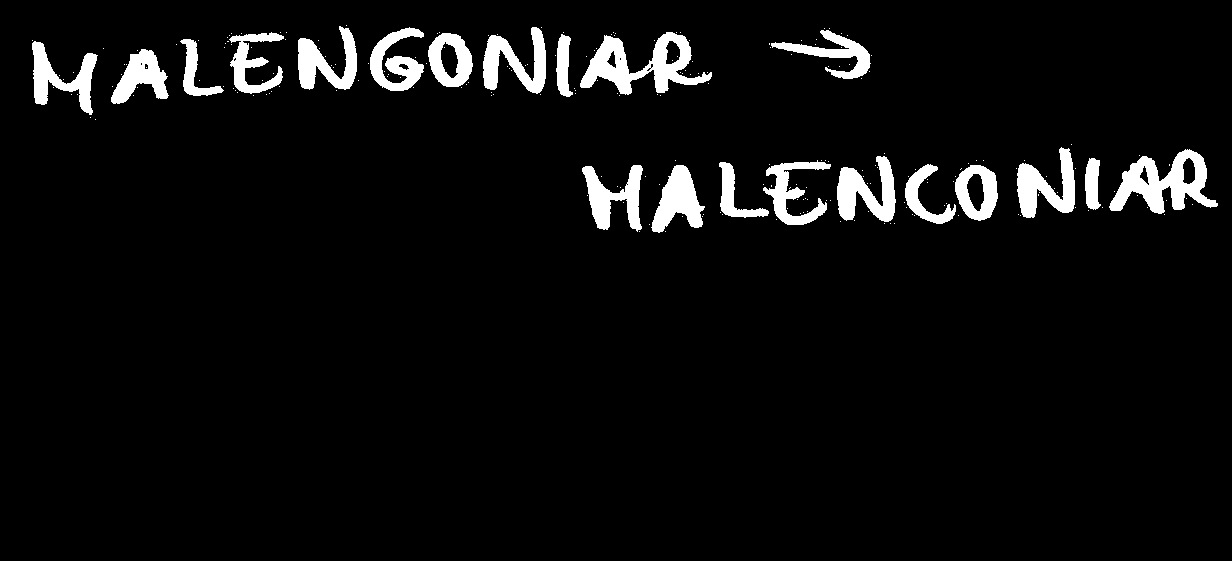 MALENGONIAR →
MALENCONIAR